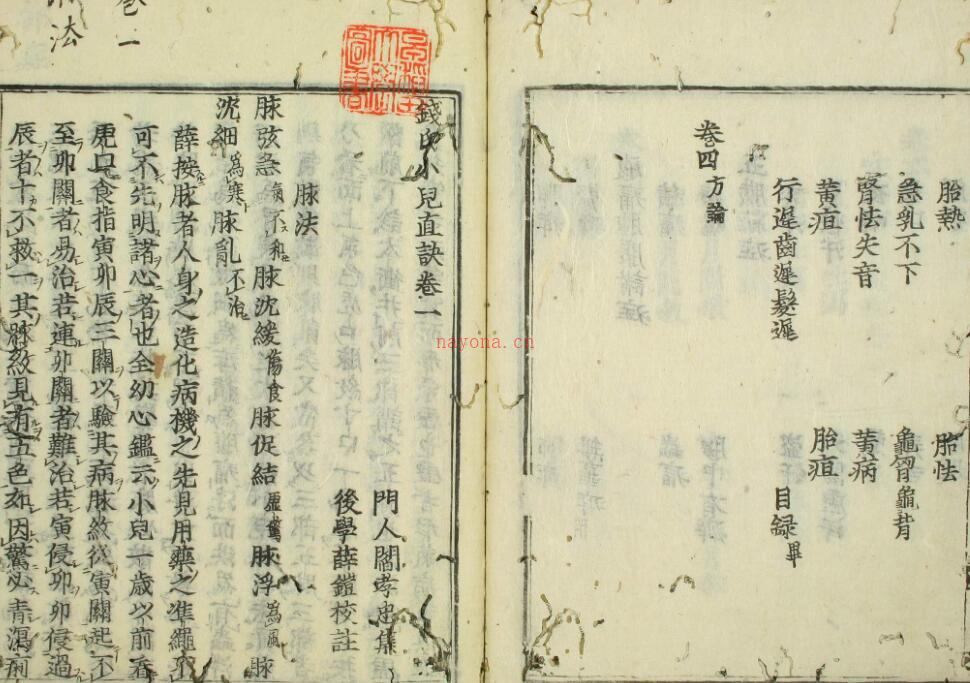 胎熱 胎怯
急乳不下 龜胷龜背
腎怯失音 黃病
黃疸 胎疸
行遲齒遲髮遲 目録畢
卷四方論
錢氏小兒直訣卷一
門人閻孝忠集
後學薛鎧校註
脉法
脉弦急氣不和脉沈緩傷食脉促結虛驚脉浮為風脉
沈細為寒脉亂不治
薛按脉者人身之造化病機之先見用藥之準繩不
可不先明諸心者也全幼心鑑云小兒一歳以前看
虎口食指寅卯辰三關以驗其病脉紋從寅關起不
至卯關者易治若連卯關者難治若寅侵卯卯侵過
辰者十不救一其脉紋見有五色如因驚必青瀉痢
卷一
法
nayona.cn